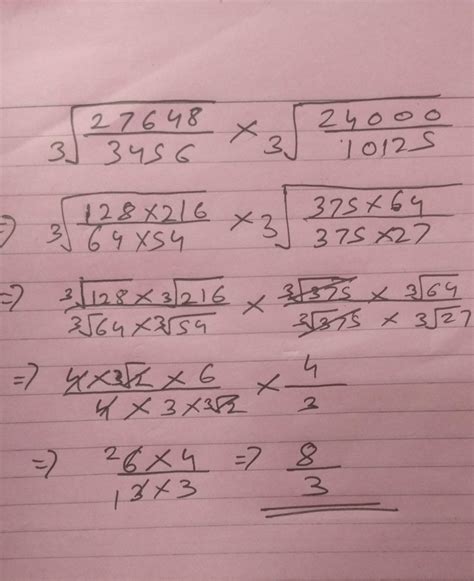 ∛(27648/3456) × ∛(24000/10125)
⇒ ∛(128×216/64×54) × ∛(375×64/375×27)
⇒ ∛128 × ∛216/∛64 × ∛54 × ∛375 × ∛64/∛375 × ∛27
⇒ 4 × ∛2 × 6/4 × 3 × ∛2 × 4/3
⇒ 2 6 × 4/1 3 × 3 ⇒ 8/3